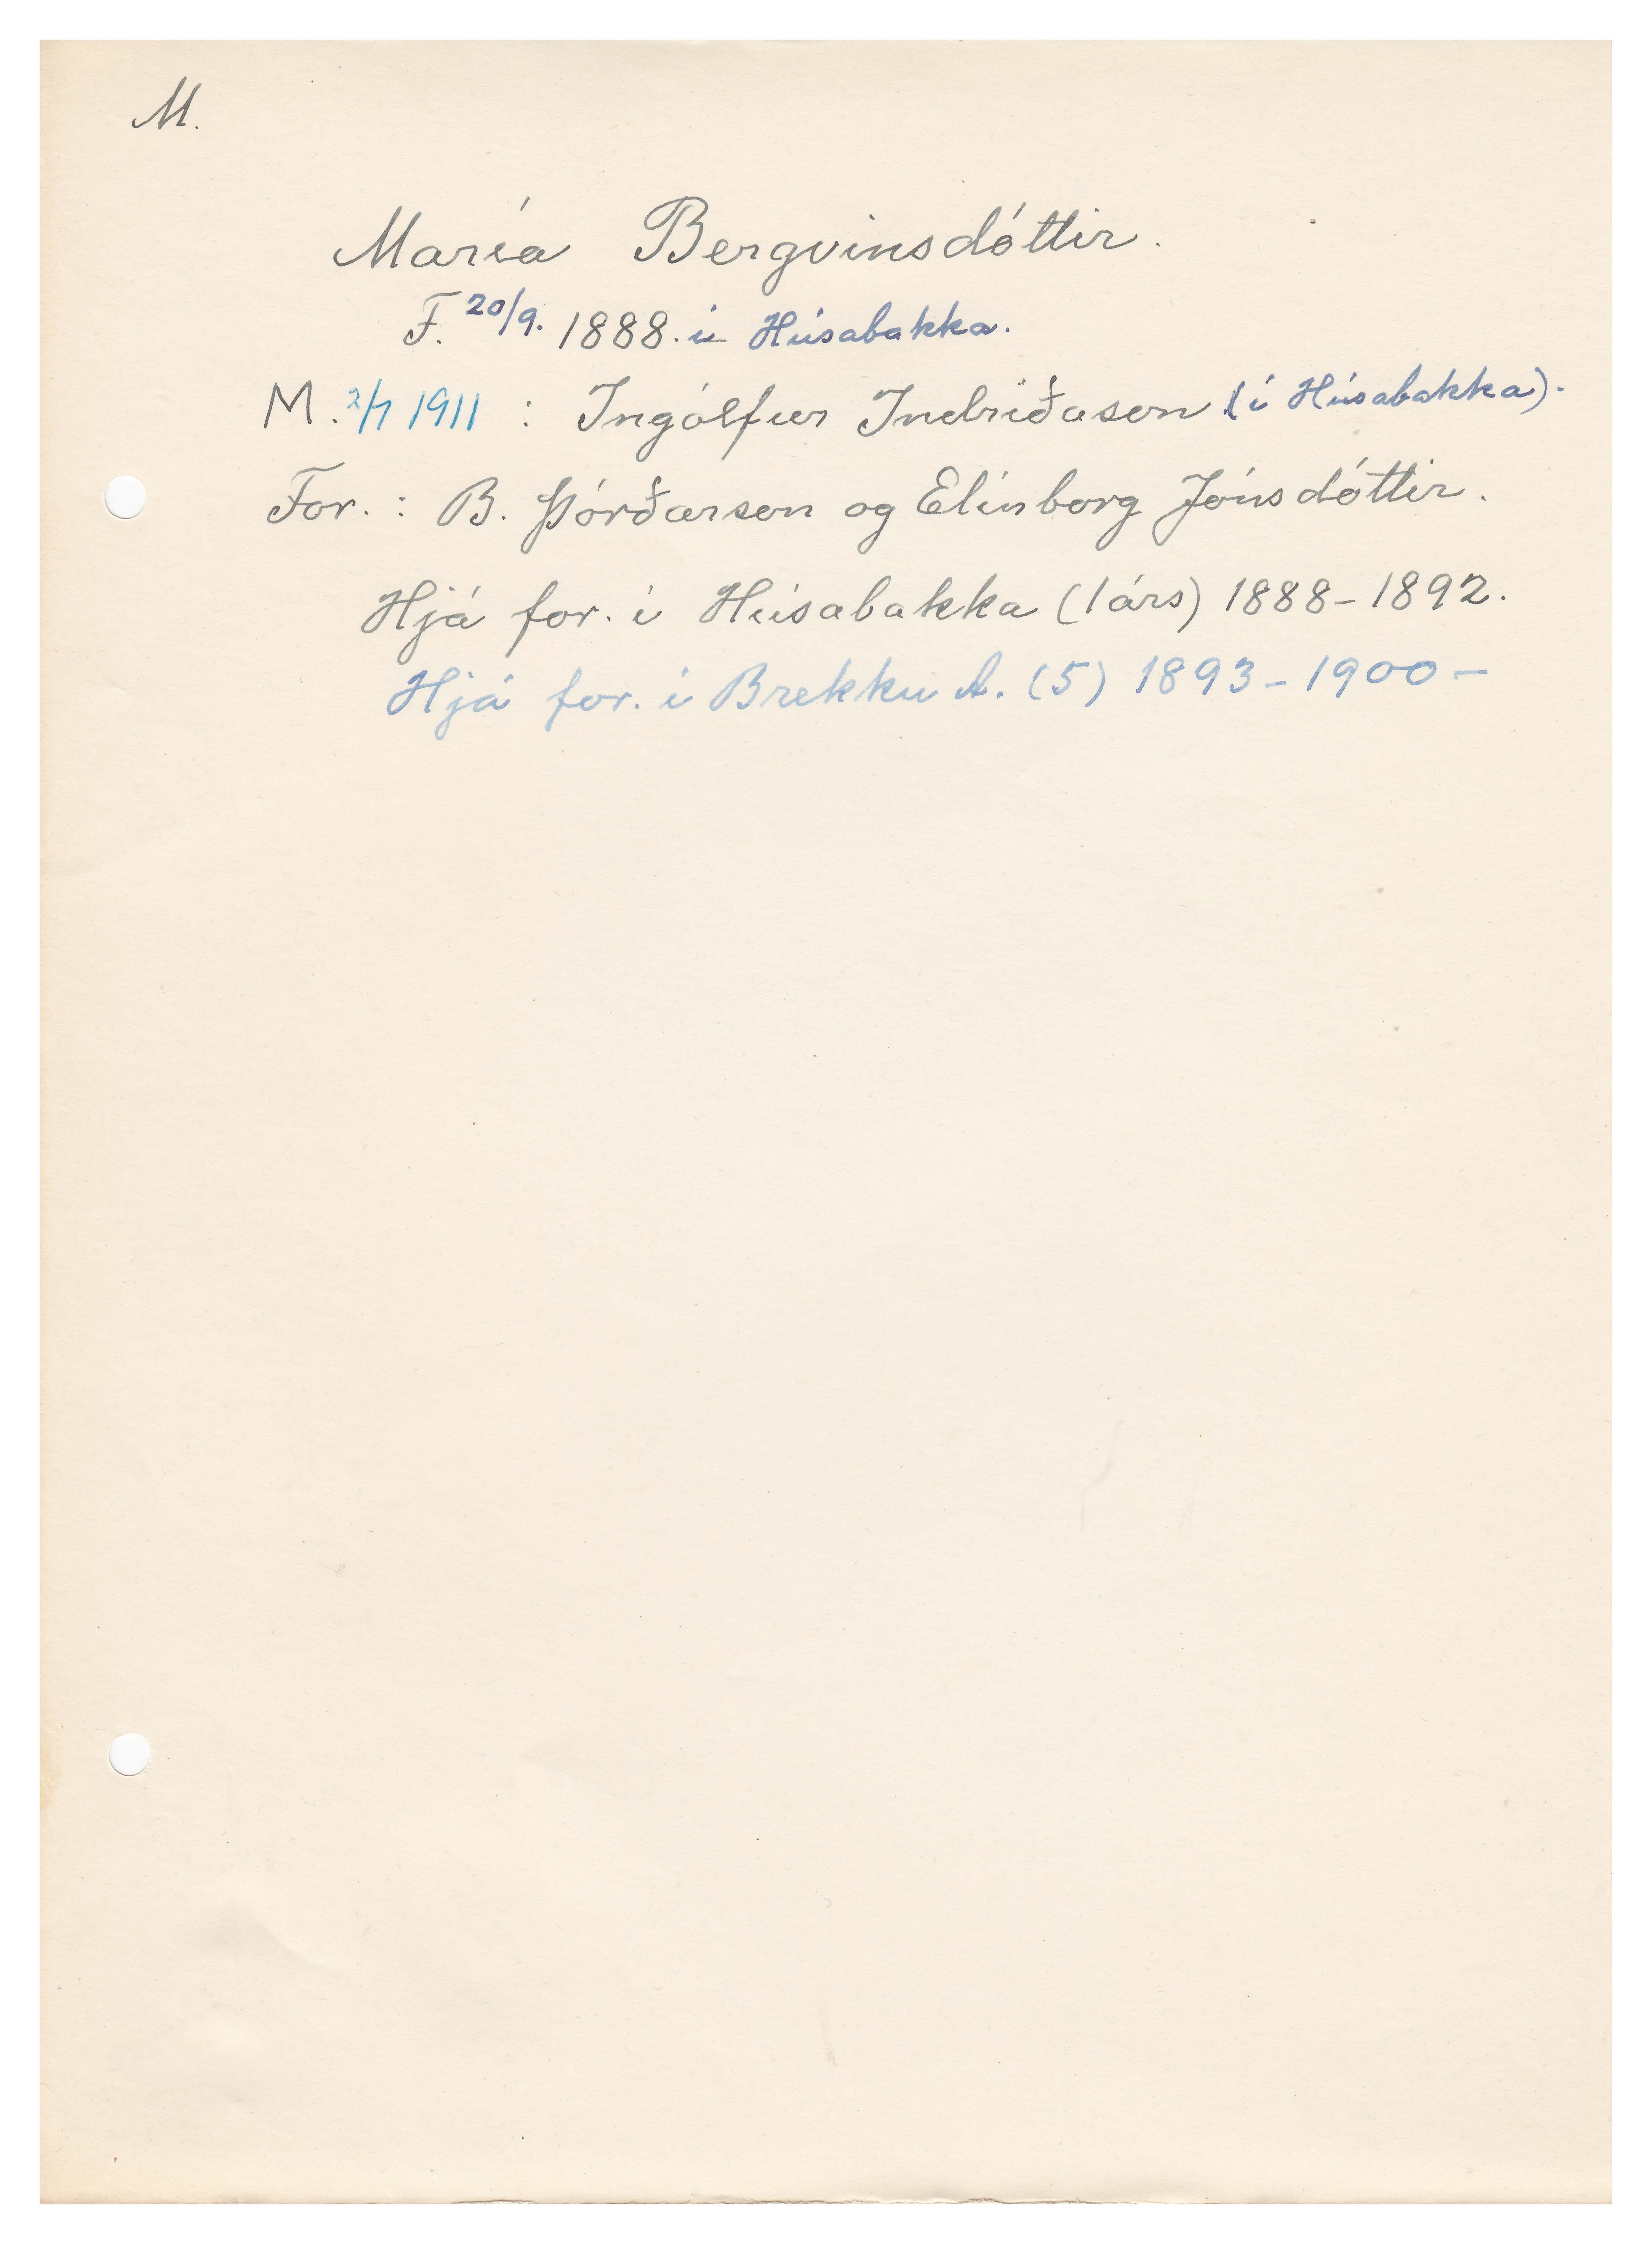 M.
María Bergvinsdóttir.
F. 20/9. 1888. í Húsabakka.
M. 2/7 1911 : Ingólfur Indriðason (í Húsabakka).
For. : B. Þórðarson og Elínborg Jónsdóttir.
Hjá for. í Húsabakka (1árs) 1888-1892.
Hjá for. í Brekku A. (5) 1893-1900-